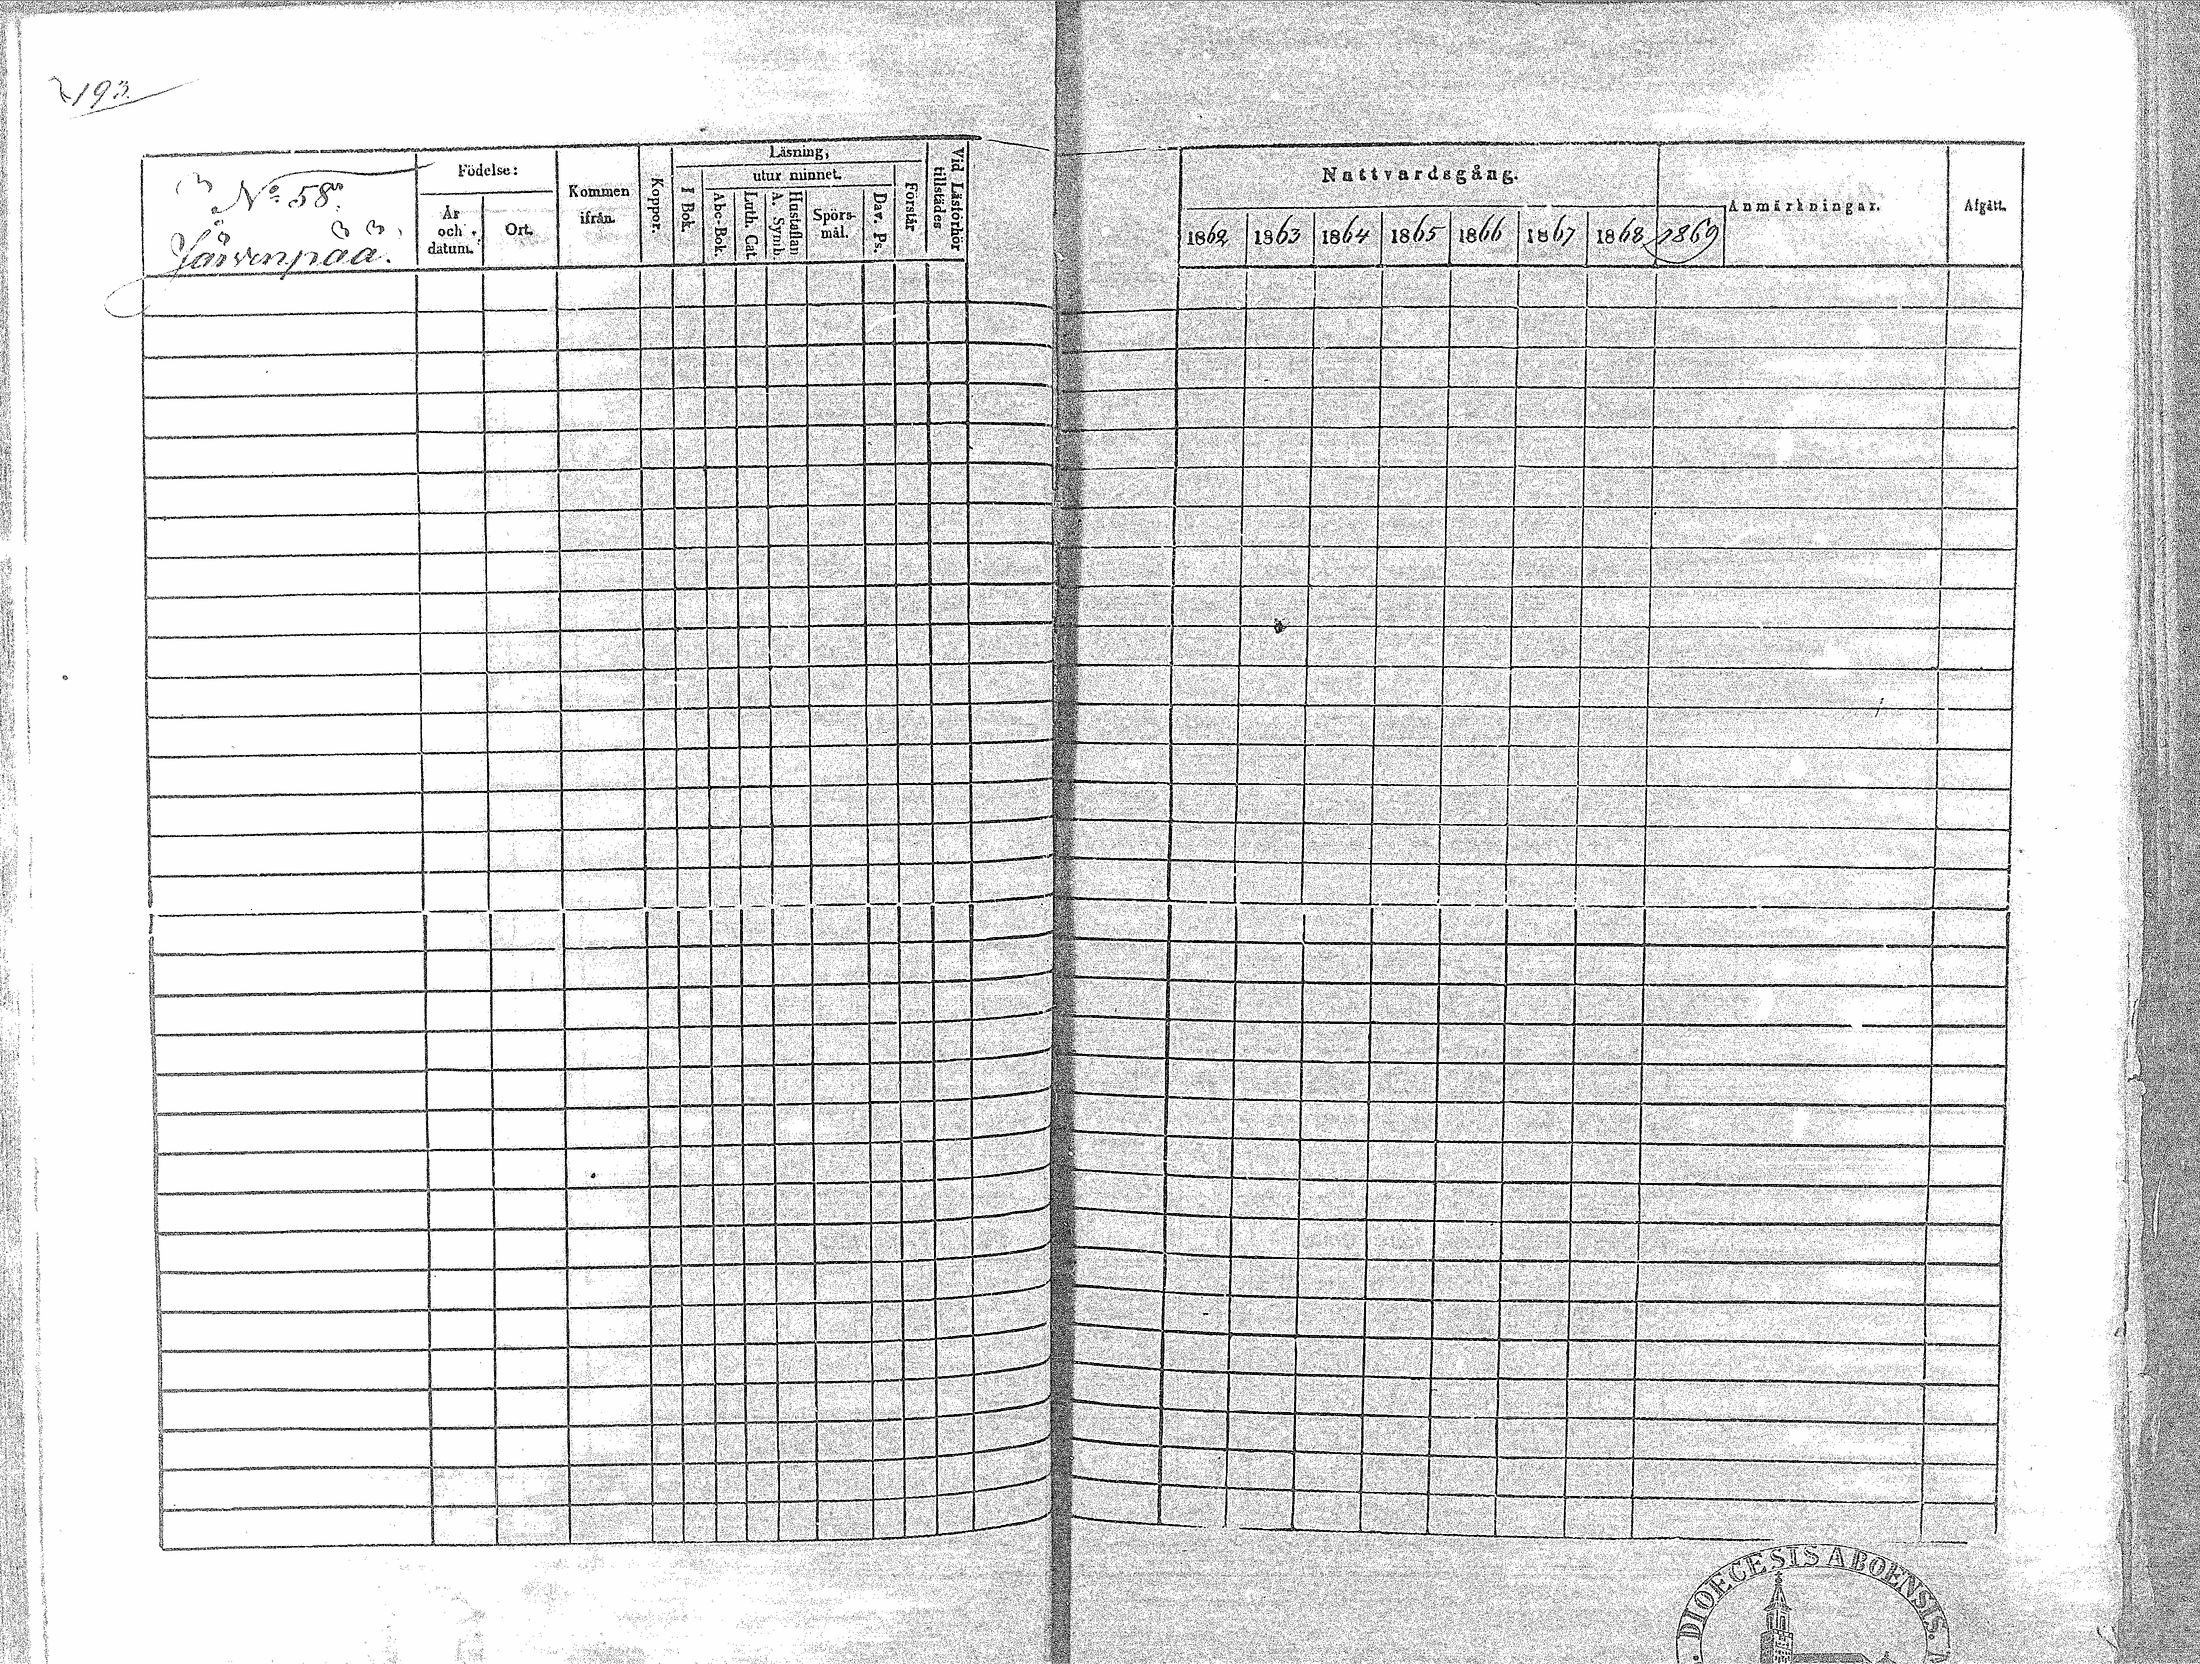 193.
No 58.
Järvenpää.
Födelse:
År
och
datum.
Ort.
Kommen
ifrån.
Koppor.
Läsning,
I Bok.
utur minnet.
Abc-Bok.
Luth. Cat.
Hustaflan
A. Symb.
Spörs-
mål.
Dav. Ps.
Förstår
Vid Läsförhör
tillstädes
Nattvardsgång.
1862 1863 1864 1865 1866 1867 1868 1869
Anmärkningar.
Afgått.
DIOECESIS ABOENSIS.